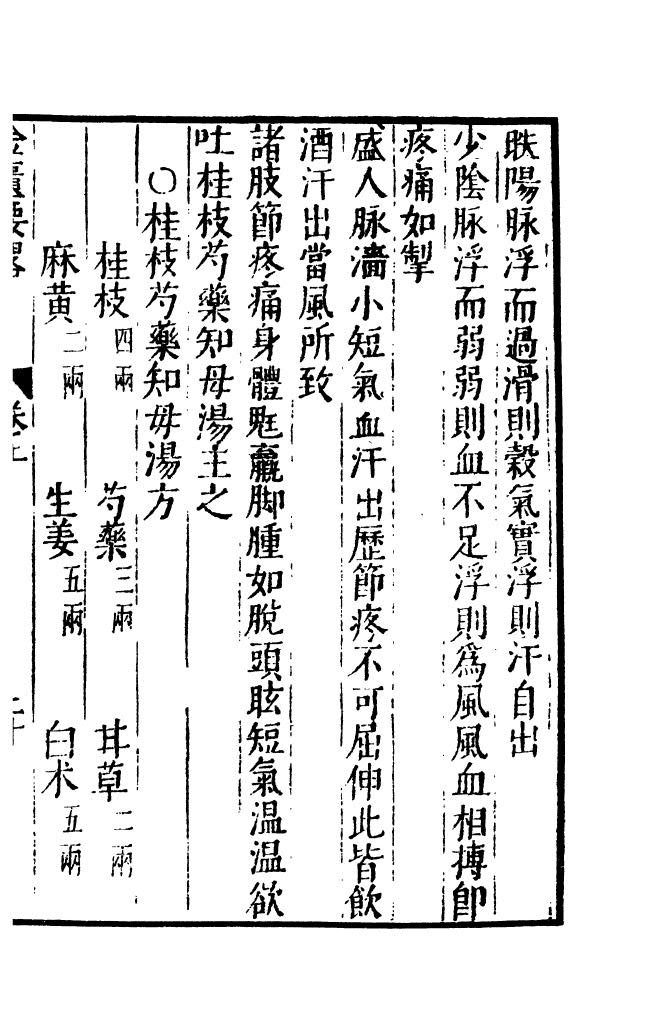 趺陽脉浮而過滑則穀氣實浮則汗自出
少陰脉浮而弱弱則血不足浮則爲風風血相搏即
疼痛如掣
盛人脉濇小短氣血汗出歷節疼不可屈伸此皆飲
酒汗出當風所致
諸肢節疼痛身體尫羸脚腫如脫頭眩短氣温温欲
吐桂枝芍藥知母湯主之
○桂枝芍藥知毋湯方
桂枝四兩 芍藥三兩 甘草二兩
麻黄二兩 生姜五兩 白术五兩